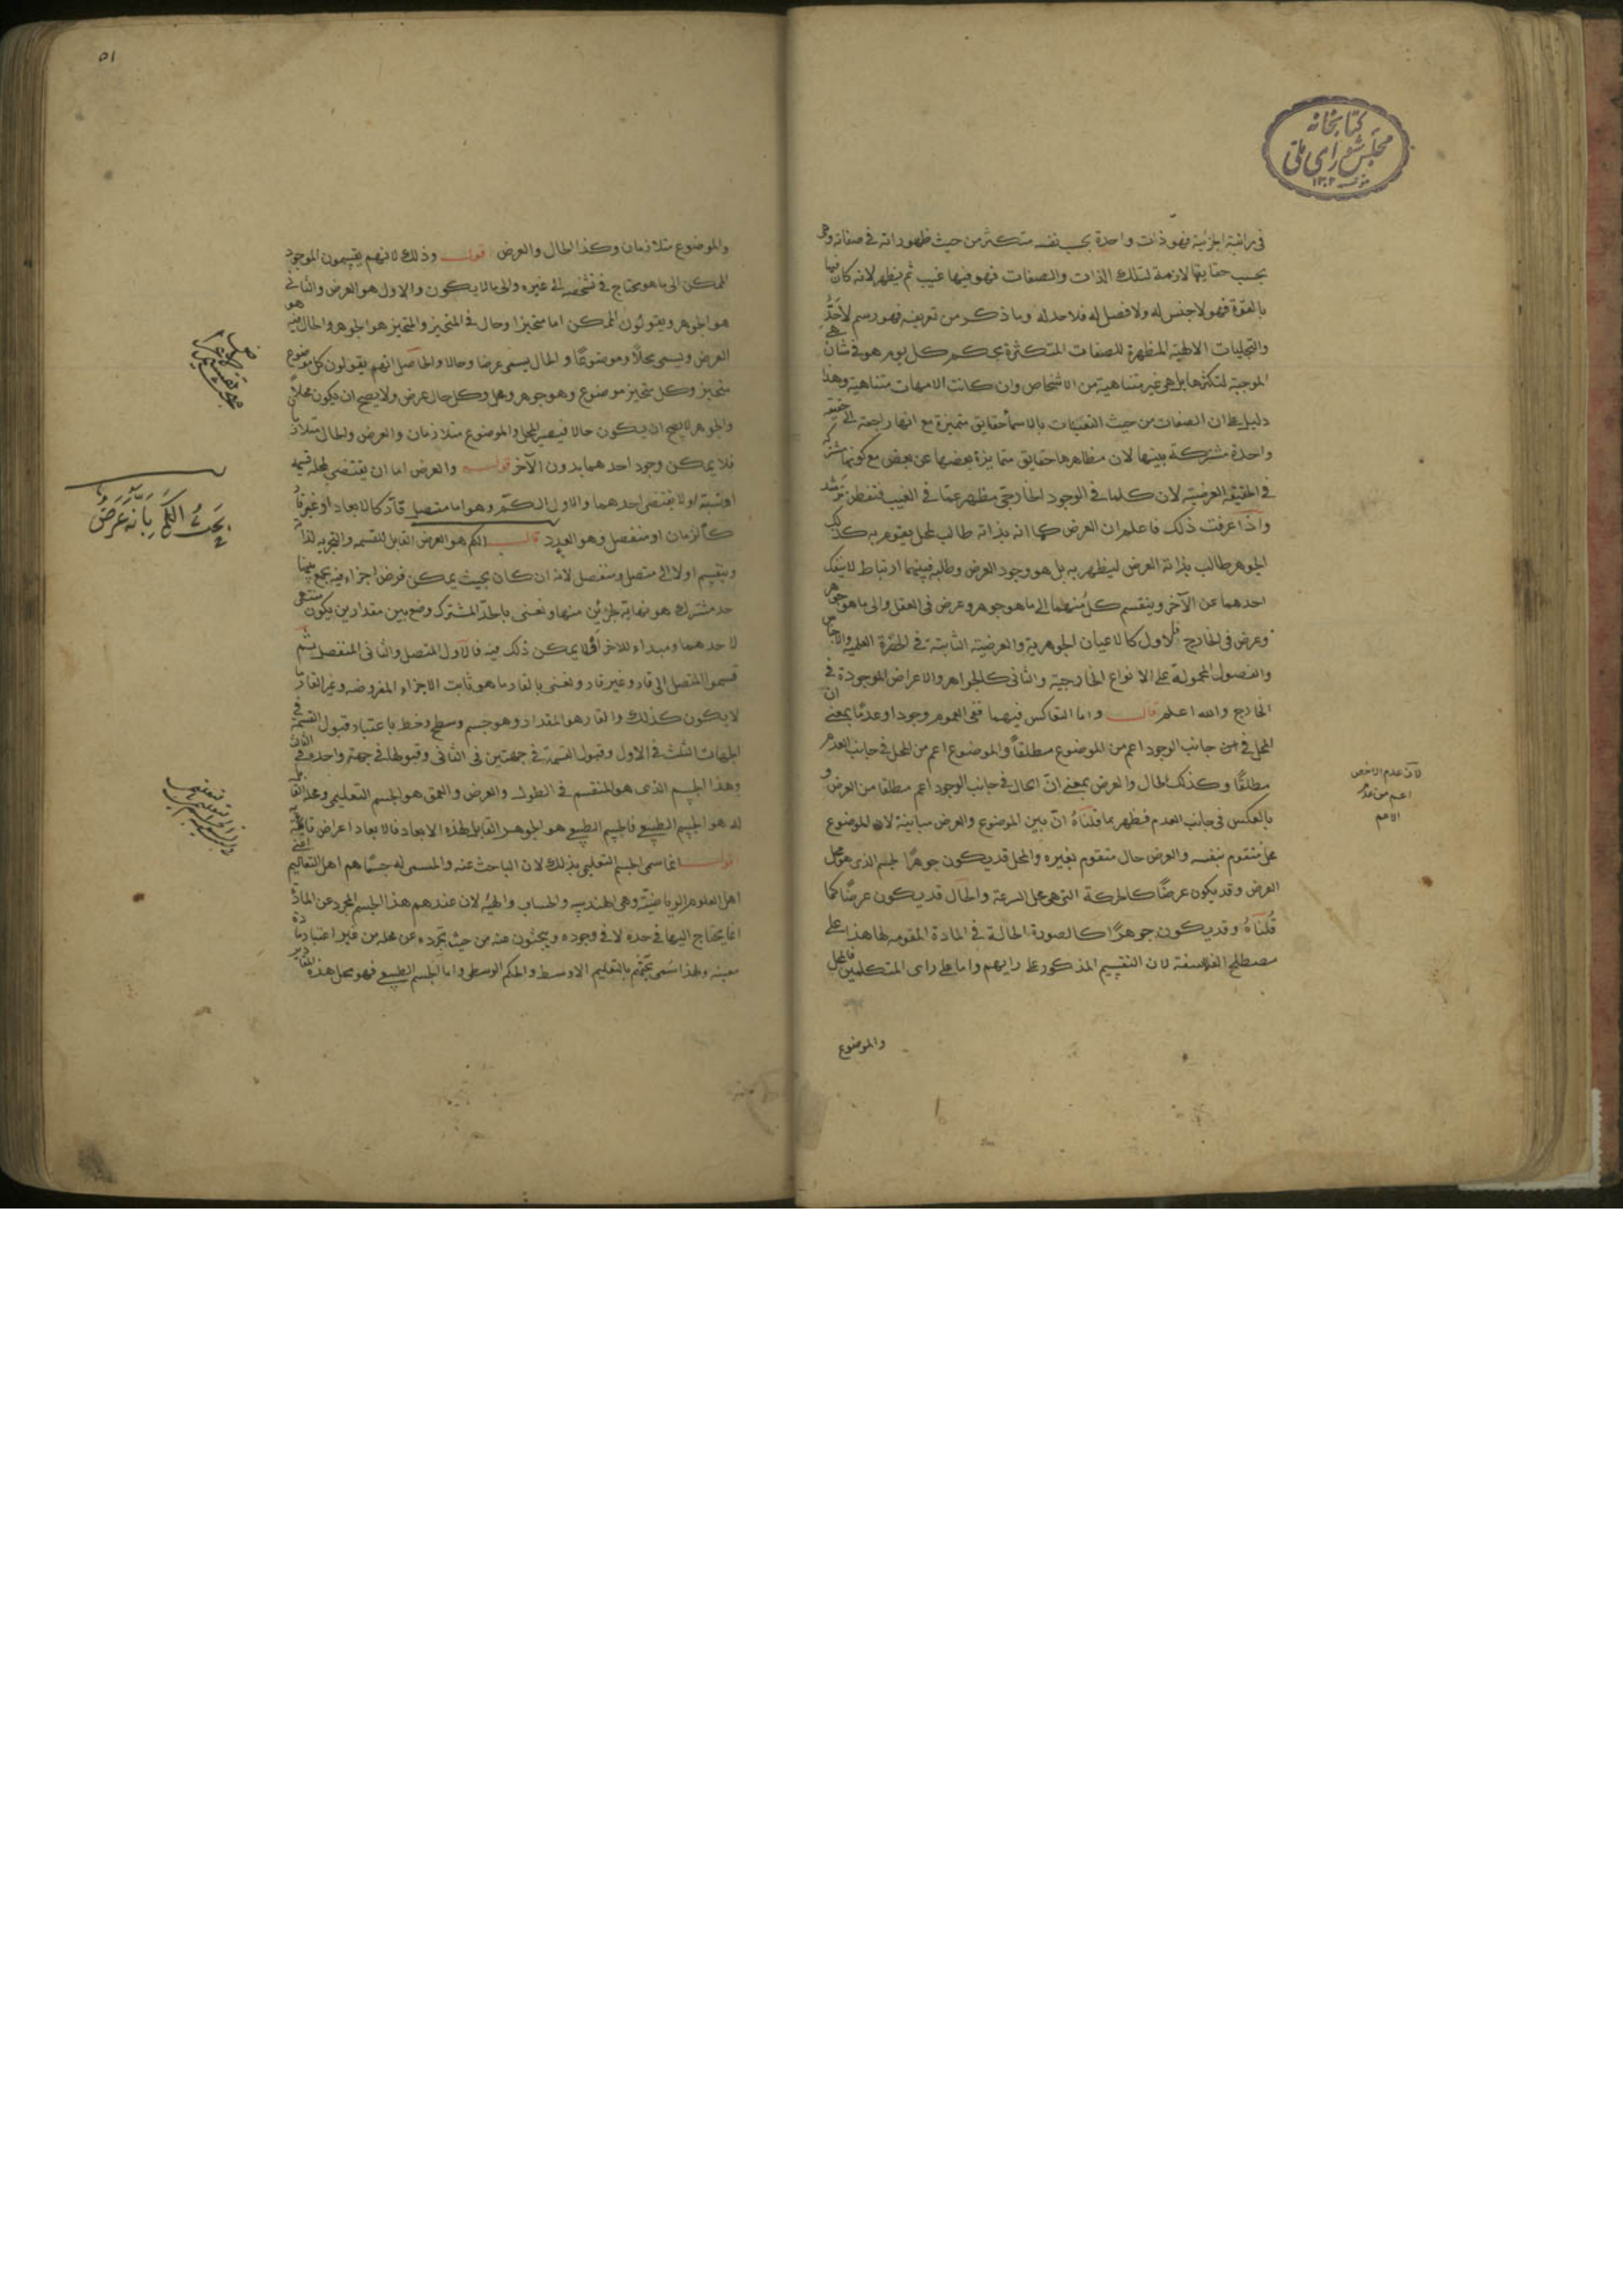 كتابخانه
مجلس شورای ملی
١٣٠٢
فى مراتبه الجزئية فهو ذات واحدة بحسب نفسه متكثر من حيث ظهوراته فى صفاته وهى
بحسب حقايقها لازمة لتلك الذات والصفات فهو فيها غيب ثم يظهر لانه كان فيها
بالقوة فهو لا جنس له ولا فصل له فلا حد له وما ذكر من تعريفه فهو رسم لا حد
والتجليات الالهية المظهرة للصفات المتكثرة بحكم كل يوم هو فى شان هى
الموجبة لتكثرها بل هى غير متناهية من الاشخاص وان كانت الامهات متناهية وهذا
دليل على ان الصفات من حيث التعينات بالاسماء حقايق متميزة مع انها راجعة الى حقيقة
واحدة مشتركة بينها لان مظاهرها حقايق متمايزة بعضها عن بعض مع كونها مشتركة
فى الحقيقة العرضية لان كلما فى الوجود الخارجى مظهر عما فى الغيب فتفطن ترشد
واذا عرفت ذلك فاعلم ان العرض كما انه بذاته طالب لمحل يقوم به كذلك
الجوهر طالب بذاته العرض ليظهر به بل هو وجود العرض وطلبه فبينهما ارتباط لا ينفك
احدهما عن الآخر وينقسم كل منهما الى ما هو جوهر وعرض فى العقل والى ما هو جوهر
وعرض فى الخارج فالاول كالاعيان الجوهرية والعرضية الثابتة فى الحضرة العلمية والاجناس
والفصول المحمولة على الانواع الخارجية والثانى كالجواهر والاعراض الموجودة فى
الخارج والله اعلم قال واما التعاكس فيهما ففى العموم وجودا وعدمًا بمعنى ان
المحل فى جانب الوجود اعم من الموضوع مطلقاً والموضوع اعم من المحل فى جانب العدم
مطلقًا وكذلك الحال والعرض بمعنى انّ الحال فى جانب الوجود اعم مطلقا من العرض و
بالعكس فى جانب العدم فظهر بما قلناهُ انّ بين الموضوع والعرض مباينة لان الموضوع
محل متقوم بنفسه والعرض حال متقوم بغيره والمحل قد يكون جوهرًا كالجسم الذى هو محل
العرض وقد يكون عرضًا كالحركة التى هى محل السرعة والحال قد يكون عرضًا كما
قُلناهُ وقد يكون جوهرًا كالصورة الحالة فى المادة المقومه لها هذا على
مصطلح الفلاسفة لان التقسيم المذكور على رايهم واما على راى المتكلمين فالمحل
والموضوع
لان عدم الاخص
اعم من عدم
الاعم
٥١
والموضوع متلازمان وكذا الحال والعرض اقول وذلك لانهم يقسمون الموجود
الممكن الى ما هو محتاج فى تشخصه الى غيره والى ما لا يكون والاول هو العرض والثانى
هو الجوهر ويقولون الممكن اما متحيزا وحال فى المتحيز والمتحيز هو الجوهر والحال فيه هو
العرض ويسمى محلًا وموضوعًا والحال يسمى عرضا وحالا والحاصل انهم يقولون كل موضوع
متحيز وكل متحيز موضوع وهو جوهر ومحل وكل حال عرض ولا يصح ان يكون محلًا
والجوهر لا يصح ان يكون حالا فيصير المحل والموضوع متلازمان والعرض والحال متلازمان
فلا يمكن وجود احدهما بدون الآخر قوله والعرض اما ان يقتضى لمحله قسمة
او نسبة او لا يقتضى احدهما والاول الكم وهو اما متصل قارّ كالابعاد او غير قار
كالزمان او منفصل وهو العدد قال الكم هو العرض القابل للقسمه والتجزيه لذاته
وينقسم اولا الى متصل ومنفصل لانه ان كان بحيث يمكن فرض اجزاء فيه يجمع بينها
حد مشترك هو نهاية لجزئين منها ونعنى بالحدّ المشترك وضع بين مقدارين يكون منتهى
لاحدهما ومبداء للاخر او لا يمكن ذلك فيه فالاول المتصل والثانى المنفصل ثم
قسموا المتصل الى قار وغير قار ونعنى بالقار ما هو ثابت الاجزاء المفروضه وغير القار ما
لا يكون كذلك والقار هو المقدار وهو جسم وسطح وخط باعتبار قبول القسمة فى
الجهات الثلث فى الاول وقبول القسمة فى جهتين فى الثانى وقبولها فى جهة واحدة فى الثالث
وهذا الجسم الذى هو المنقسم فى الطول والعرض والعمق هو الجسم التعليمى ومحله القابل
له هو الجسم الطبيعى فالجسم الطبيعى هو الجوهر القابل لهذه الابعاد فالابعاد اعراض قائمة به
قوله انما سمى الجسم التعليمى بذلك لان الباحث عنه والمسمى له جسمًا هم اهل التعاليم اعنى
اهل العلوم الرياضيّة وهى الهندسه والحساب والهيئه لان عندهم هذا الجسم المجرد عن المادة
انما يحتاج اليها فى حده لا فى وجوده ويبحثون عنه من حيث تجرّده عن محله من غير اعتبار مادة
معينه ولهذا سمى بحثهم بالتعليم الاوسط والحكم الوسطى واما الجسم الطبيعى فهو محل هذه المقادير
بحث الكم بانه عرض